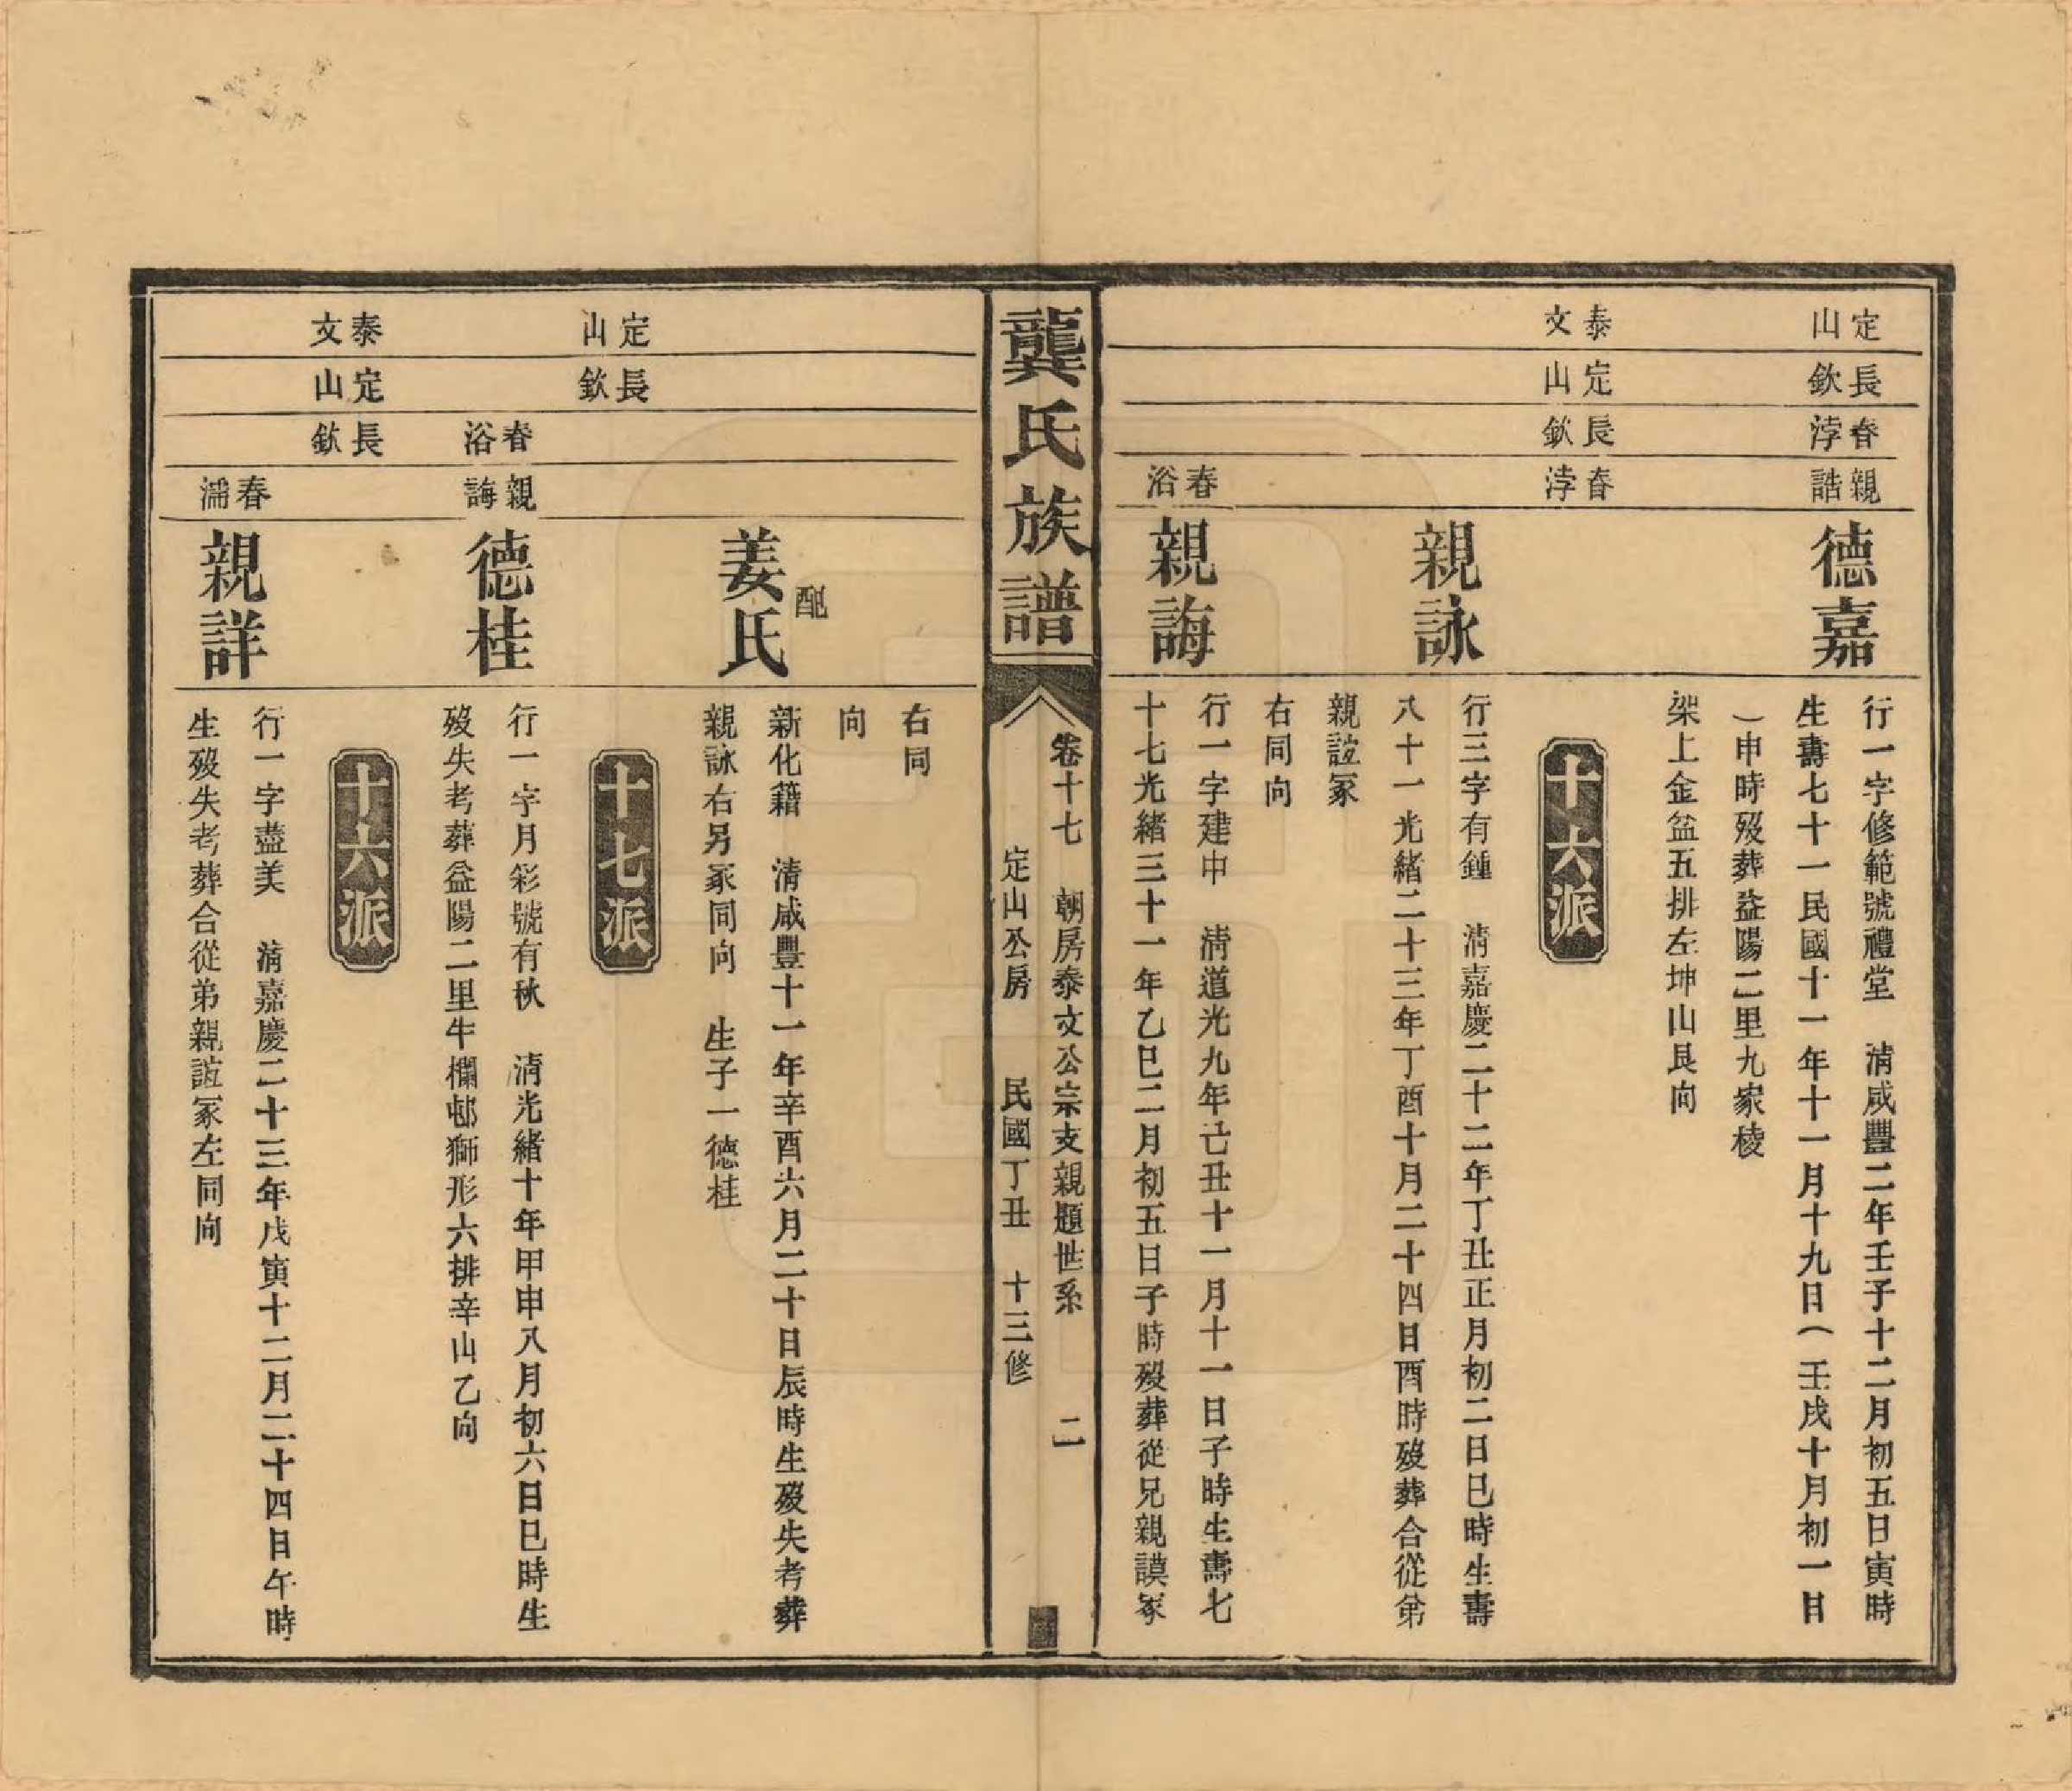 定山
長欽
春浡
親誥
德嘉
行一字修範號禮堂　清咸豐二年壬子十二月初五日寅時
生壽七十一民國十一年十一月十九日（壬戌十月初一日
）申時歿葬益陽二里九家棱
架上金盆五排左坤山艮向
十六派
泰文
定山
長欽
春浡
親詠
行三字有鍾　清嘉慶二十二年丁丑正月初二日巳時生壽
八十一光緒二十三年丁酉十月二十四日酉時歿葬合從弟
親誼冢
右同向
春浴
親誨
行一字建中　清道光九年己丑十一月十一日子時生壽七
十七光緒三十一年乙巳二月初五日子時歿葬從兄親謨冢
龔氏族譜
卷十七　朝房泰文公宗支親題世系　二
定山公房　民國丁丑　十三修
右同
向
定山
長欽
配
姜氏
新化籍　清咸豐十一年辛酉六月二十日辰時生歿失考葬
親詠右另冢同向　生子一德桂
十七派
春浴
親誨
德桂
行一字月彩號有秋　清光緒十年甲申八月初六日巳時生
歿失考葬益陽二里牛欄邨獅形六排辛山乙向
十六派
泰文
定山
長欽
春濡
親詳
行一字藎美　清嘉慶二十三年戊寅十二月二十四日午時
生歿失考葬合從弟親誼冢左同向